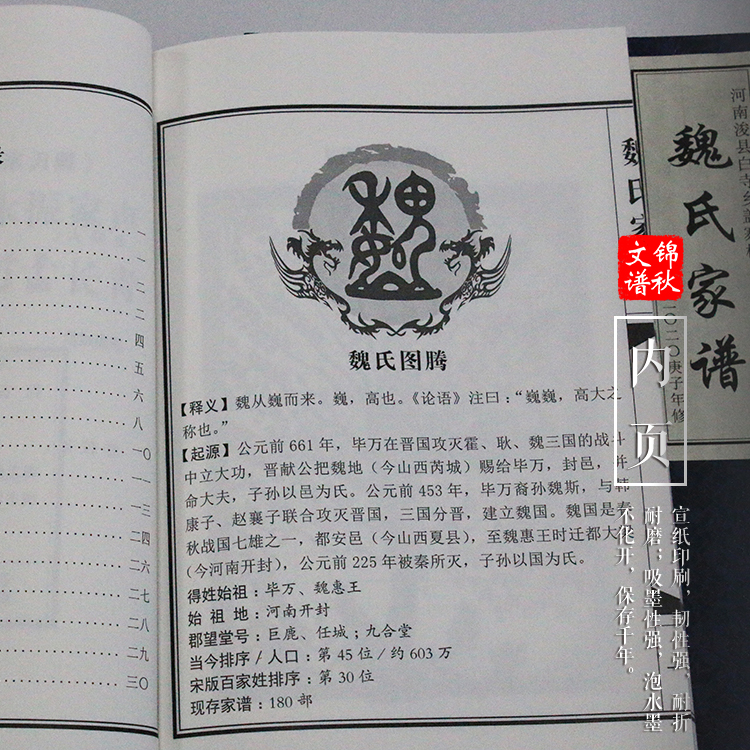 一
一
二
二
四
五
六
八
一〇
一一
一三
二四
二六
二七
二八
二九
三〇
魏
魏氏图腾
【释义】魏从巍而来。巍，高也。《论语》注曰：“巍巍，高大之
称也。”
【起源】公元前 661 年，毕万在晋国攻灭霍、耿、魏三国的战斗
中立大功，晋献公把魏地（今山西芮城）赐给毕万，封邑，并
命大夫，子孙以邑为氏。公元前 453 年，毕万裔孙魏斯，与韩
康子、赵襄子联合攻灭晋国，三国分晋，建立魏国。魏国是春
秋战国七雄之一，都安邑（今山西夏县），至魏惠王时迁都大
（今河南开封），公元前 225 年被秦所灭，子孙以国为氏。
得姓始祖：毕万、魏惠王
始 祖 地：河南开封
郡望堂号：巨鹿、任城；九合堂
当今排序 / 人口：第 45 位 / 约 603 万
宋版百家姓排序：第 30 位
现存家谱：180 部
魏氏家
河南浚县白寺
魏氏家谱
二〇二〇庚子年修
锦秋
文谱
内页
宣纸印刷，韧性强，耐折
耐磨；吸墨性强，泡水墨
不化开，保存千年。